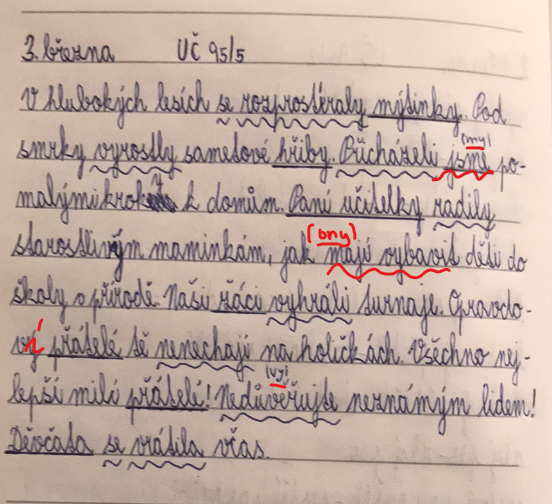 3. března UČ 95/5
V hlubokých lesích se rozprostíraly mýtinky. Pod
(my)
smrky vyrostly sametové hřiby. Přicházeli jsme po-
malými kroky k domům. Paní učitelky radily
(ony)
starostlivým maminkám, jak mají vybavit děti do
školy v přírodě. Naši žáci vyhráli turnaje. Opravdo-
ví přátelé tě nenechají na holičkách. Všechno nej-
(vy)
lepší milí přátelé! Nedůvěřujte neznámým lidem!
Děvčata se vrátila včas.